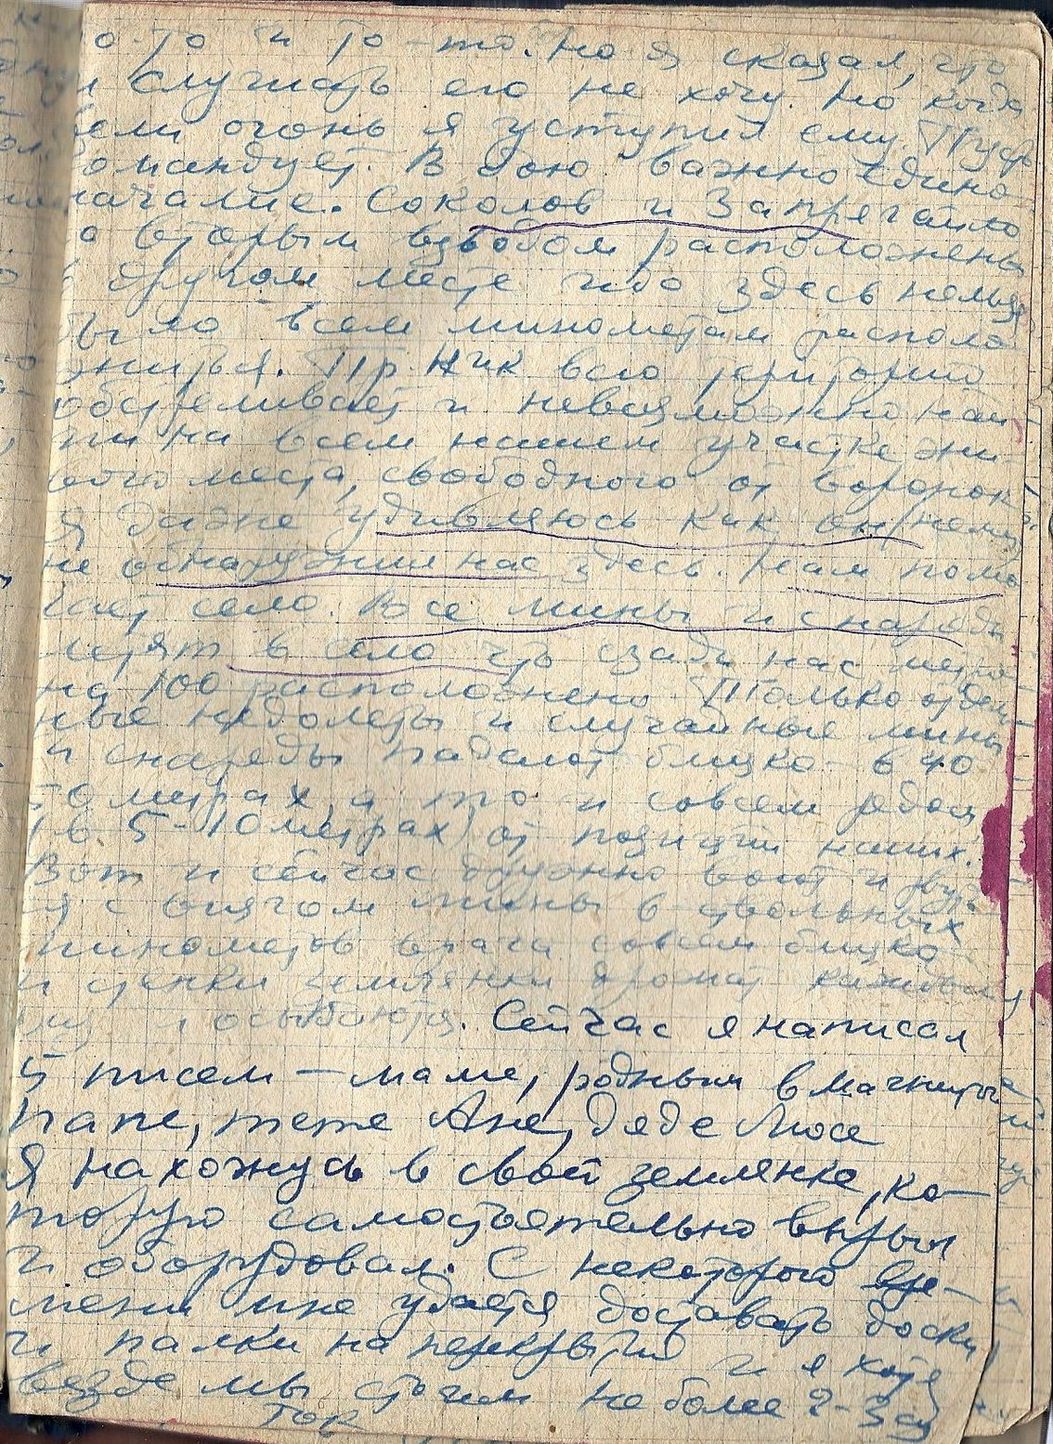 о-то и то-то. Но я сказал, что
и слушать его не хочу. Но когда
вели огонь я уступил ему. Пусть
командует. В бою важно едино
началие. Соколов и Запрягайло
со вторым взводом расположены
в другом месте ибо здесь нельзя
было всем минометам располо
житься. Пр-ник всю территорию
обстреливает и невозможно най
ти на всем нашем участке жи-
вого места, свободного от воронок.
Я даже удивляюсь как он/немец
не обнаружил нас здесь. Нам помо
гает село. Все мины и снаряды
летят в село что сзади нас метров
на 100 расположено. Только отдель
ные недолеты и случайные мины
и снаряды падают близко в 40
метрах, а то и совсем рядом
(в 5-10 метрах) от позиций наших.
Вот и сейчас дружно воют и рвутс
я с визгом мины
минометов врага совсем близко
и стенки землянки дрожат
осыпаются. Сейчас я написал
5 писем – маме, родным в Магнитог
папе, тете Ане, дяде Люсе
Я нахожусь в своей землянке, ко-
торую самостоятельно вырыл
и оборудовал. С некоторого вре-
мени мне удается доставать доски
и палки на перекрытия и я хотя
везде мы стоим не более 2-3 су
ток